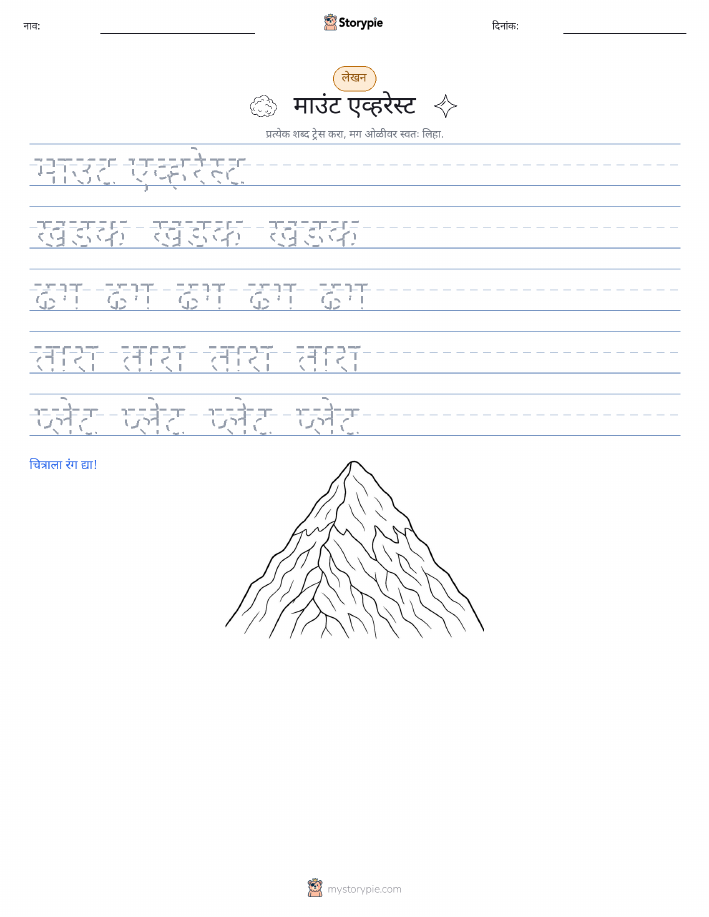 नाव: Storypie दिनांक:
लेखन
माउंट एव्हरेस्ट
प्रत्येक शब्द ट्रेस करा, मग ओळीवर स्वतः लिहा.
माउंट एव्हरेस्ट
खडक खडक खडक
ढग ढग ढग ढग ढग
तारा तारा तारा तारा
प्लेट प्लेट प्लेट प्लेट
चित्राला रंग द्या!
mystorypie.com